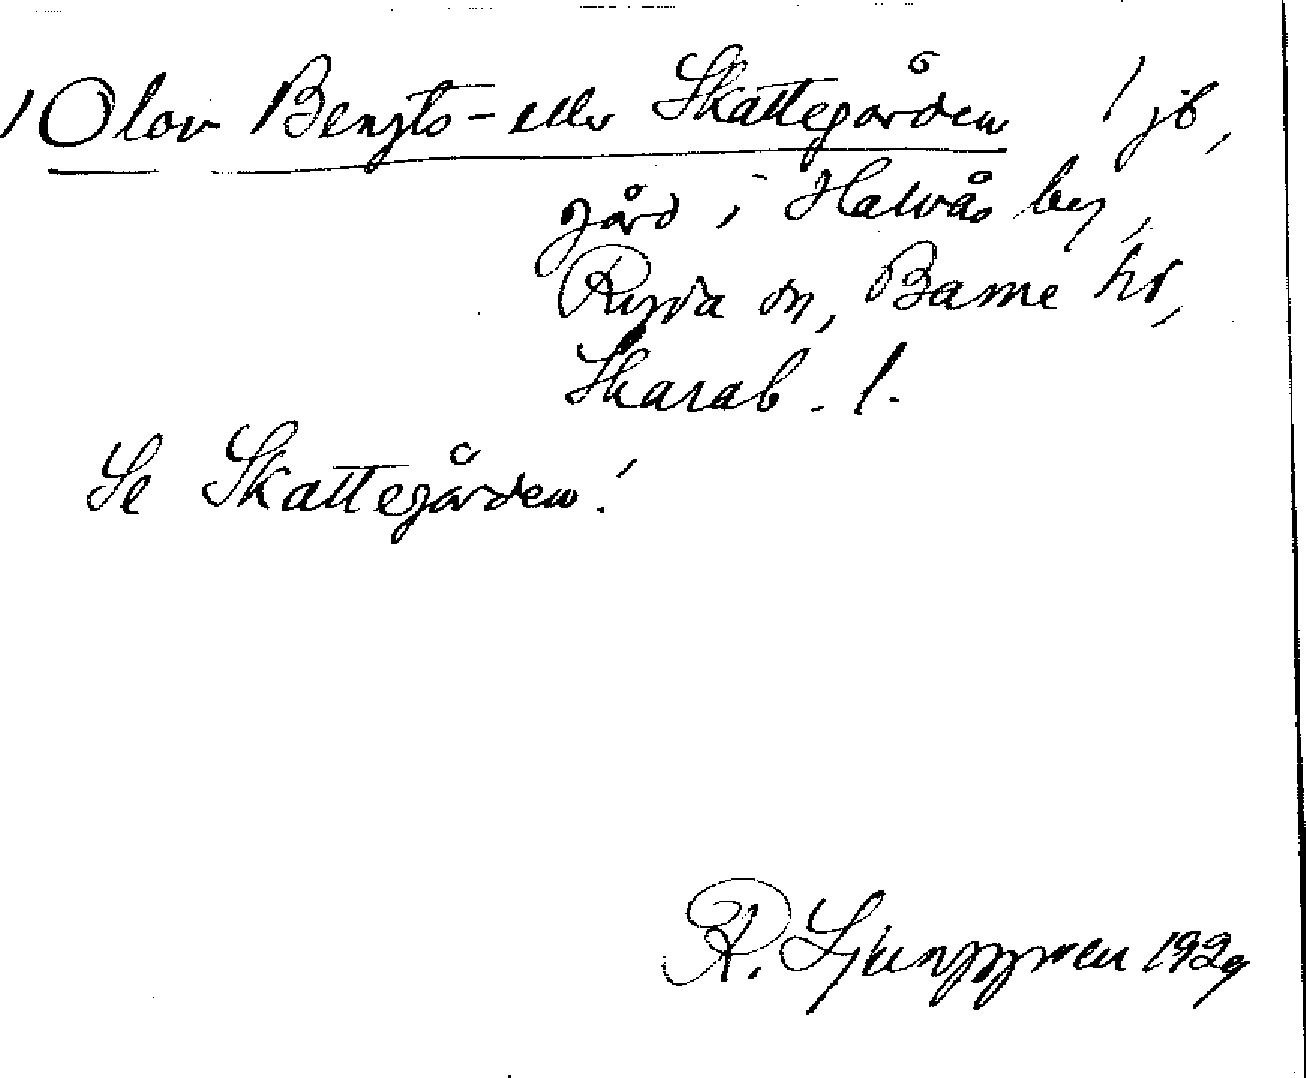 Olov Bengts- eller Skattegården / jb,
gård i Halvås by,
Ryda sn, Barne hd,
Skarab. l.
Se Skattegården!
R. Ljunggren 1929